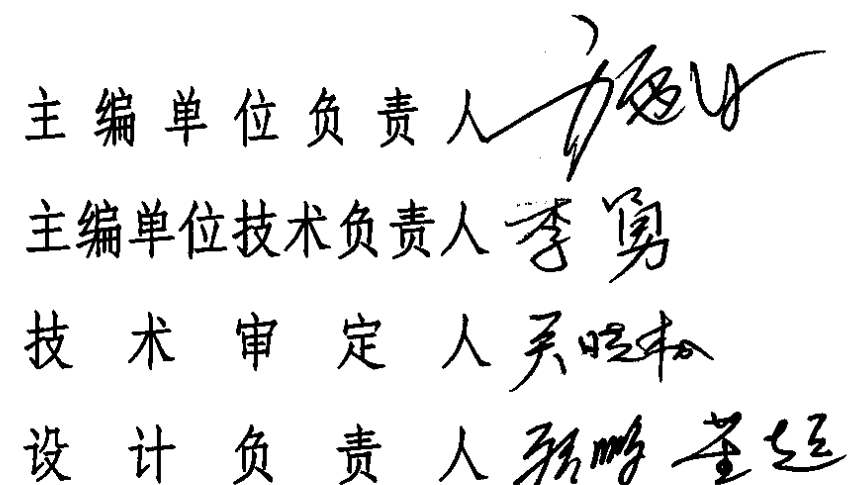 主编单位负责人
主编单位技术负责人 李勇
技术审定人 吴晓松
设计负责人 鹏 董超